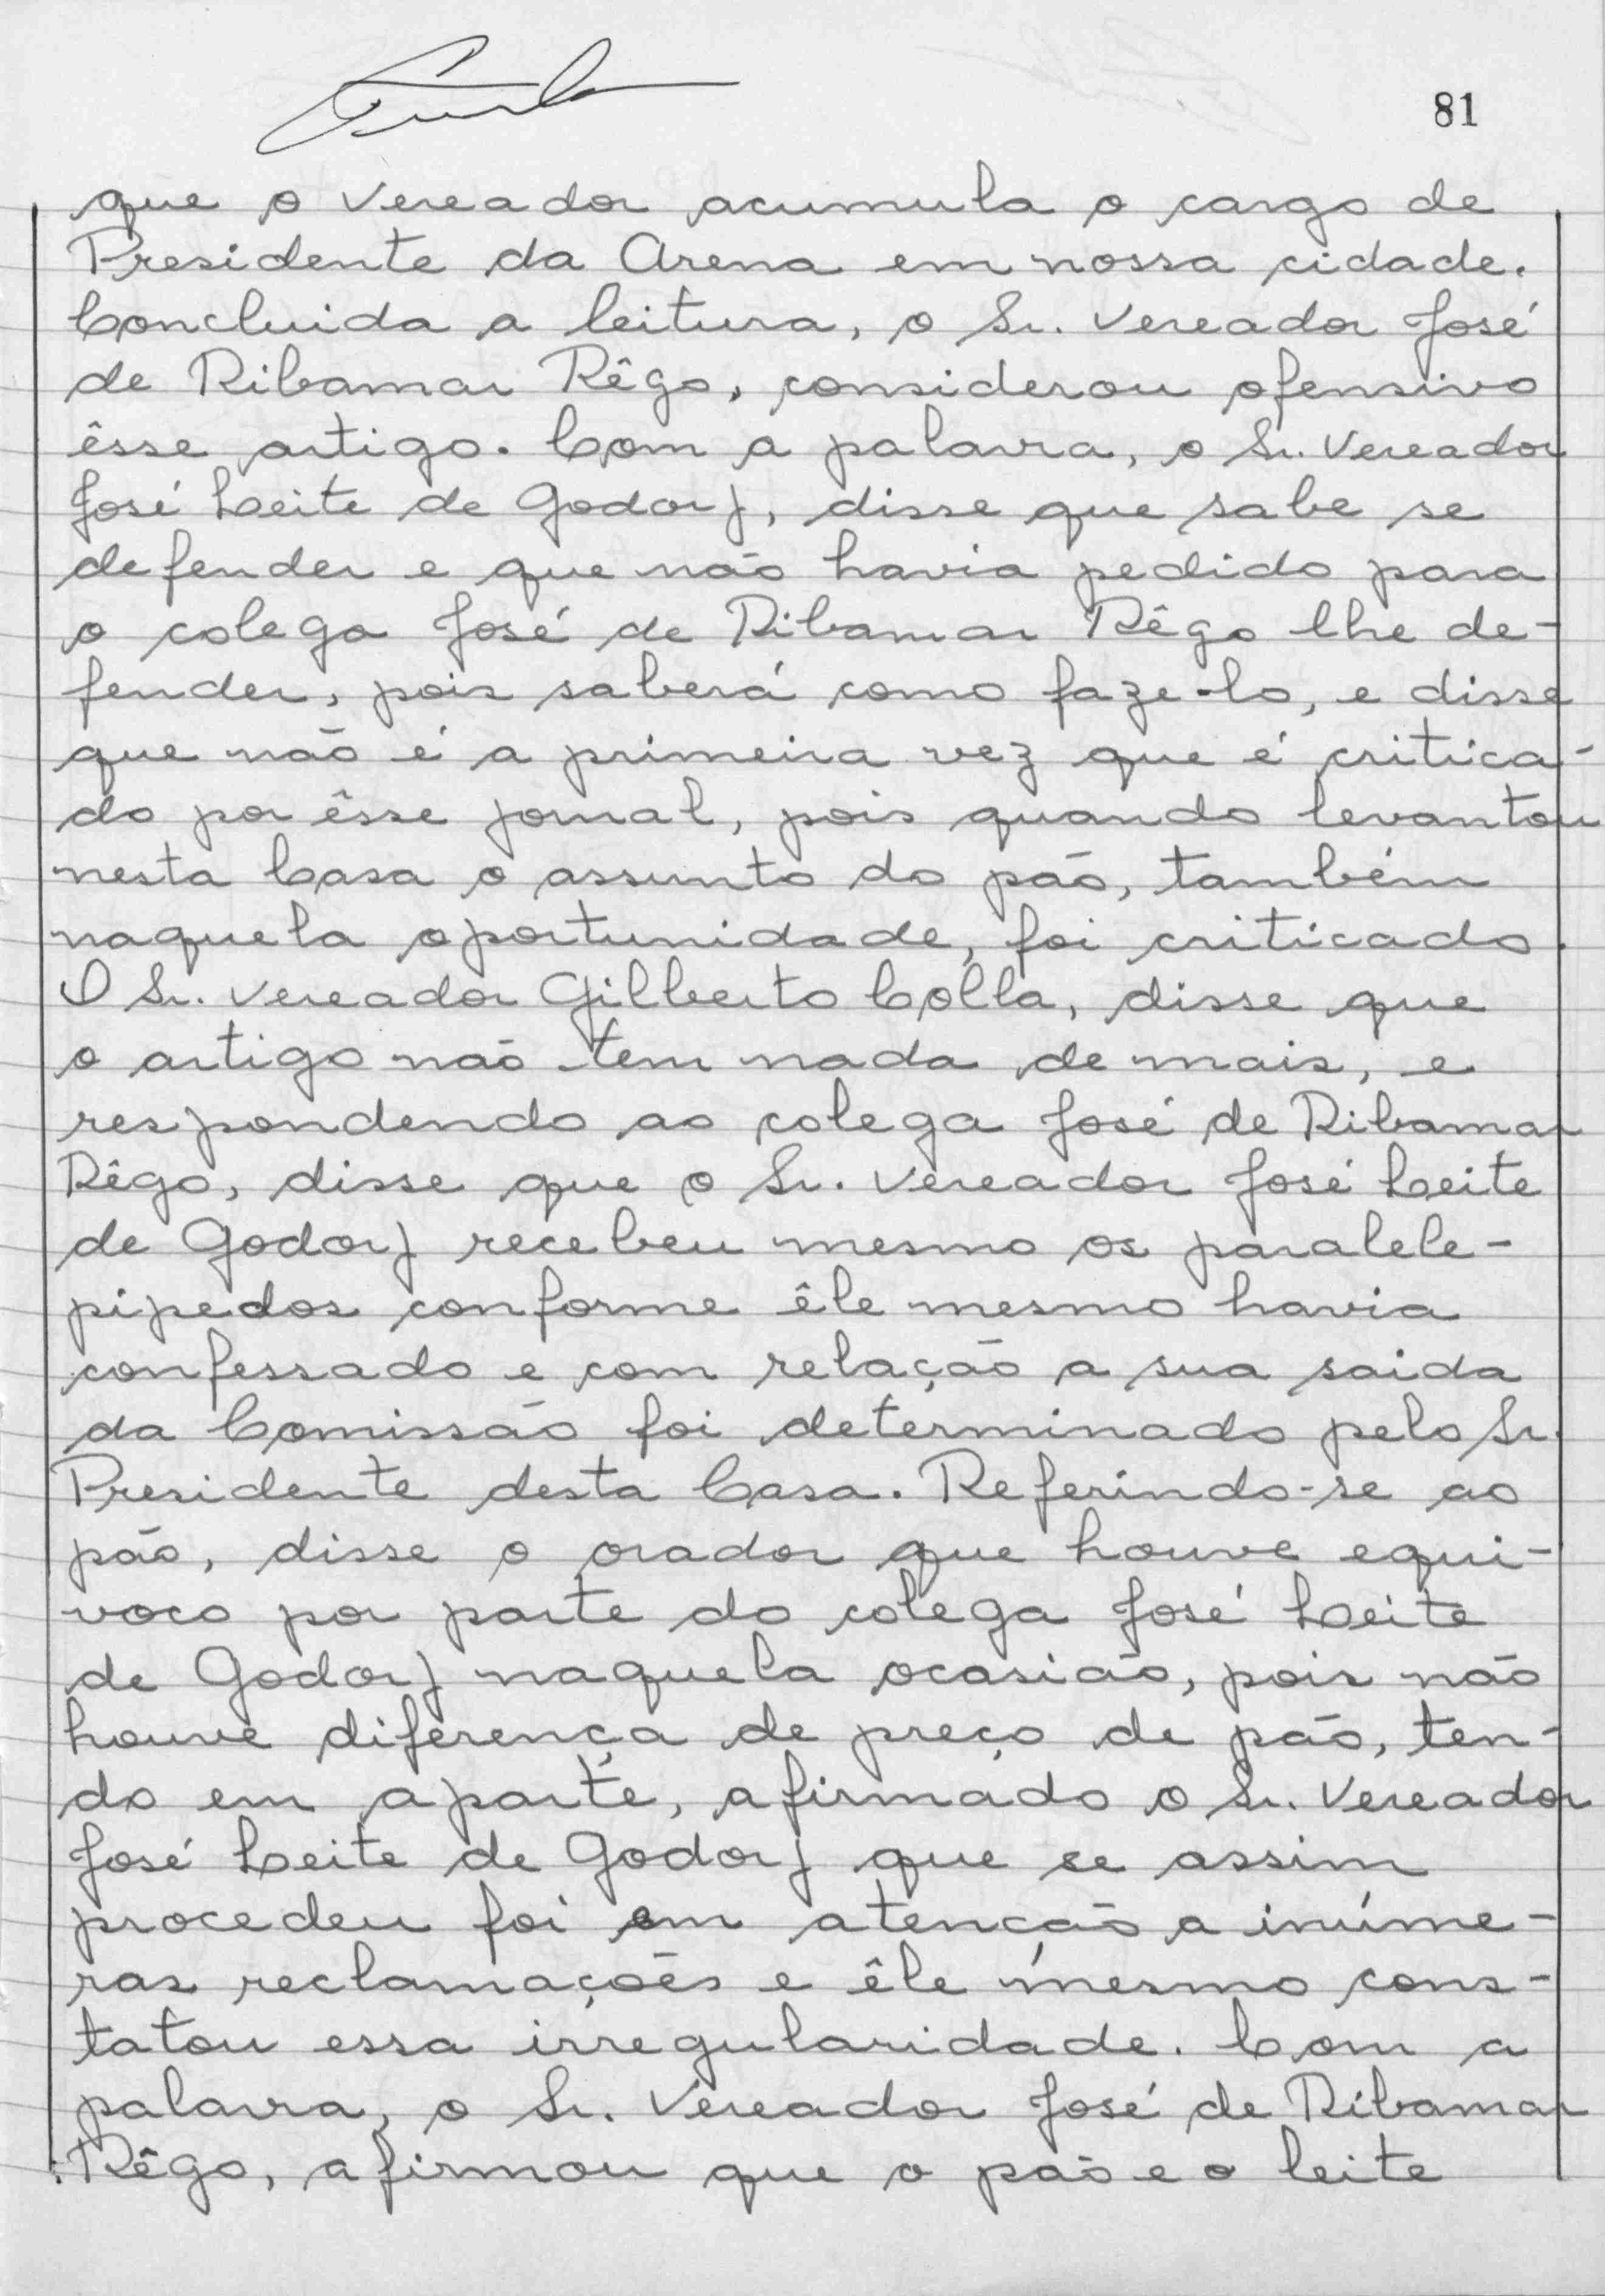 81
que o Vereador acumula o cargo de
Presidente da Arena em nossa cidade.
Concluida a leitura, o Sr. Vereador José
de Ribamar Rêgo, considerou ofensivo
êsse artigo. Com a palavra, o Sr. Vereador
José Leite de Godoy, disse que sabe se
defender e que não havia pedido para
o colega José de Ribamar Rêgo lhe de-
fender, pois saberá como faze-lo, e disse
que não é a primeira vez que é critica-
do por êsse jornal, pois quando levantou
nesta Casa o assunto do pão, também
naquela oportunidade, foi criticado.
O Sr. Vereador Gilberto Colla, disse que
o artigo não tem nada de mais, e
respondendo ao colega José de Ribamar
Rêgo, disse que o Sr. Vereador José Leite
de Godoy recebeu mesmo os paralele-
pipedos conforme êle mesmo havia
confessado e com relação a sua saida
da Comissão foi determinado pelo Sr.
Presidente desta Casa. Referindo-se ao
pão, disse o orador que houve equi-
voco por parte do colega José Leite
de Godoy naquela ocasião, pois não
houve diferença de preço de pão, ten-
do em aparte, afirmado o Sr. Vereador
José Leite de Godoy que se assim
procedeu foi em atenção a inúme-
ras reclamações e êle mesmo cons-
tatou essa irregularidade. Com a
palavra, o Sr. Vereador José de Ribamar
Rêgo, afirmou que o pão e o leite